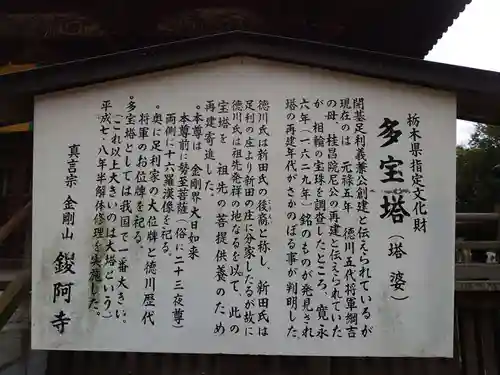 栃木県指定文化財
多宝塔（塔婆）
開基足利義兼公創建と伝えられているが
現在のは　元禄五年　徳川五代将軍綱吉
の母　桂昌院尼公の再建と伝えられていた
が　相輪の宝珠を調査したところ、寛永
六年（一六二九年）銘のものが発見され
塔の再建年代がさかのぼる事が判明した。
徳川氏は新田氏の後裔と称し、新田氏は
足利の庄より新田の庄に分家したるが故に
徳川氏は祖先発祥の地なるを以て、此の
宝塔を　祖先の菩提供養のため
再建寄進した。
本尊は　金剛界大日如来
本尊前に勢至菩薩（俗に二十三夜尊）
両側に十六羅漢像を祀る。
奥に足利家の大位牌と徳川歴代
将軍のお位牌を祀る。
多宝塔としては我国で一番大きい。
（これ以上大きいのは大塔という）
平成七・八年半解体修理を実施した。
真言宗　金剛山　鑁阿寺